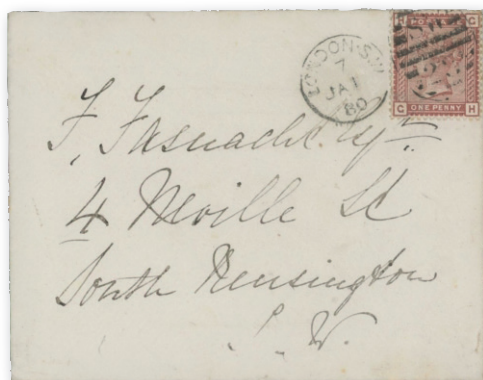 LONDON·S.W
7
JA 1
80
H G
POSTAGE
G H
ONE PENNY
F. Fasnacht. Esqre
4 Neville St
South Kensington
S. W.